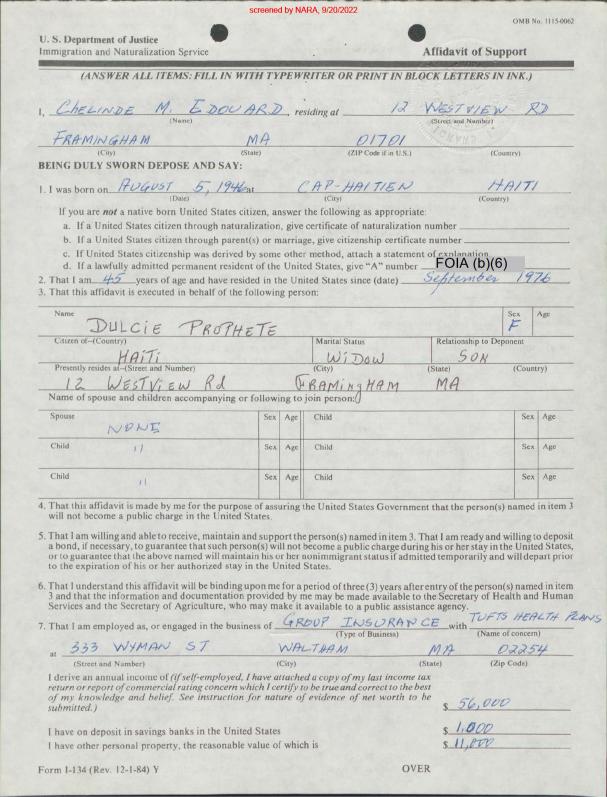 screened by NARA, 9/20/2022
OMB No. 1115-0062
U. S. Department of Justice
Immigration and Naturalization Service Affidavit of Support
(ANSWER ALL ITEMS: FILL IN WITH TYPEWRITER OR PRINT IN BLOCK LETTERS IN INK.)
I, CHELINDE M. EDOUARD, residing at 12 WESTVIEW RD
(Name) (Street and Number)
FRAMINGHAM MA 01701
(City) (State) (ZIP Code if in U.S.) (Country)
BEING DULY SWORN DEPOSE AND SAY:
1. I was born on AUGUST 5, 1946 at CAP-HAITIEN HAITI
(Date) (City) (Country)
If you are not a native born United States citizen, answer the following as appropriate:
a. If a United States citizen through naturalization, give certificate of naturalization number
b. If a United States citizen through parent(s) or marriage, give citizenship certificate number
c. If United States citizenship was derived by some other method, attach a statement of explanation.
d. If a lawfully admitted permanent resident of the United States, give "A" number FOIA (b)(6)
2. That I am 45 years of age and have resided in the United States since (date) September 1976
3. That this affidavit is executed in behalf of the following person:
Name Sex Age
DULCIE PROPHETE F
Citizen of--(Country) Marital Status Relationship to Deponent
HAITI WIDOW SON
Presently resides at--(Street and Number) (City) (State) (Country)
12 WESTVIEW Rd FRAMINGHAM MA
Name of spouse and children accompanying or following to join person:
Spouse Sex Age Child Sex Age
NONE
Child Sex Age Child Sex Age
"
Child Sex Age Child Sex Age
"
4. That this affidavit is made by me for the purpose of assuring the United States Government that the person(s) named in item 3
will not become a public charge in the United States.
5. That I am willing and able to receive, maintain and support the person(s) named in item 3. That I am ready and willing to deposit
a bond, if necessary, to guarantee that such person(s) will not become a public charge during his or her stay in the United States,
or to guarantee that the above named will maintain his or her nonimmigrant status if admitted temporarily and will depart prior
to the expiration of his or her authorized stay in the United States.
6. That I understand this affidavit will be binding upon me for a period of three (3) years after entry of the person(s) named in item
3 and that the information and documentation provided by me may be made available to the Secretary of Health and Human
Services and the Secretary of Agriculture, who may make it available to a public assistance agency.
7. That I am employed as, or engaged in the business of GROUP INSURANCE with TUFTS HEALTH PLANS
(Type of Business) (Name of concern)
at 333 WYMAN ST WALTHAM MA 02254
(Street and Number) (City) (State) (Zip Code)
I derive an annual income of (if self-employed, I have attached a copy of my last income tax
return or report of commercial rating concern which I certify to be true and correct to the best
of my knowledge and belief. See instruction for nature of evidence of net worth to be
submitted.) $ 56,000
I have on deposit in savings banks in the United States $ 1,000
I have other personal property, the reasonable value of which is $ 11,000
Form I-134 (Rev. 12-1-84) Y OVER